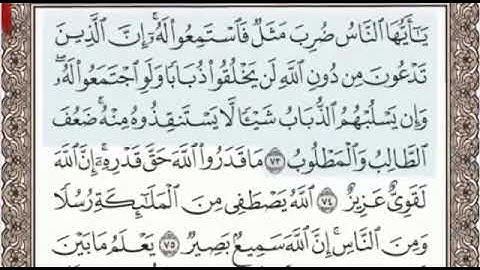 يَـٰٓأَيُّهَا ٱلنَّاسُ ضُرِبَ مَثَلٌ فَٱسْتَمِعُوا۟ لَهُۥٓ ۚ إِنَّ ٱلَّذِينَ
تَدْعُونَ مِن دُونِ ٱللَّهِ لَن يَخْلُقُوا۟ ذُبَابًا وَلَوِ ٱجْتَمَعُوا۟ لَهُۥ ۖ
وَإِن يَسْلُبْهُمُ ٱلذُّبَابُ شَيْـًٔا لَّا يَسْتَنقِذُوهُ مِنْهُ ۚ ضَعُفَ
ٱلطَّالِبُ وَٱلْمَطْلُوبُ ٧٣ مَا قَدَرُوا۟ ٱللَّهَ حَقَّ قَدْرِهِۦٓ ۗ إِنَّ ٱللَّهَ
لَقَوِىٌّ عَزِيزٌ ٧٤ ٱللَّهُ يَصْطَفِى مِنَ ٱلْمَلَـٰٓئِكَةِ رُسُلًا
وَمِنَ ٱلنَّاسِ ۚ إِنَّ ٱللَّهَ سَمِيعٌۢ بَصِيرٌ ٧٥ يَعْلَمُ مَا بَيْنَ